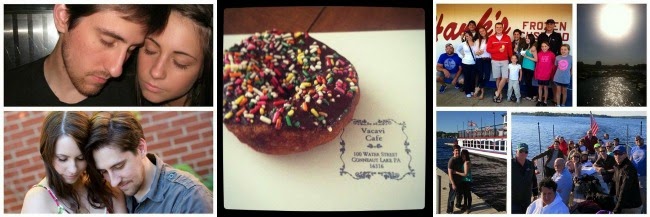 Vacavi
Cafe
100 Water Street
Conneaut Lake, PA
16316
Hank's
FROZEN